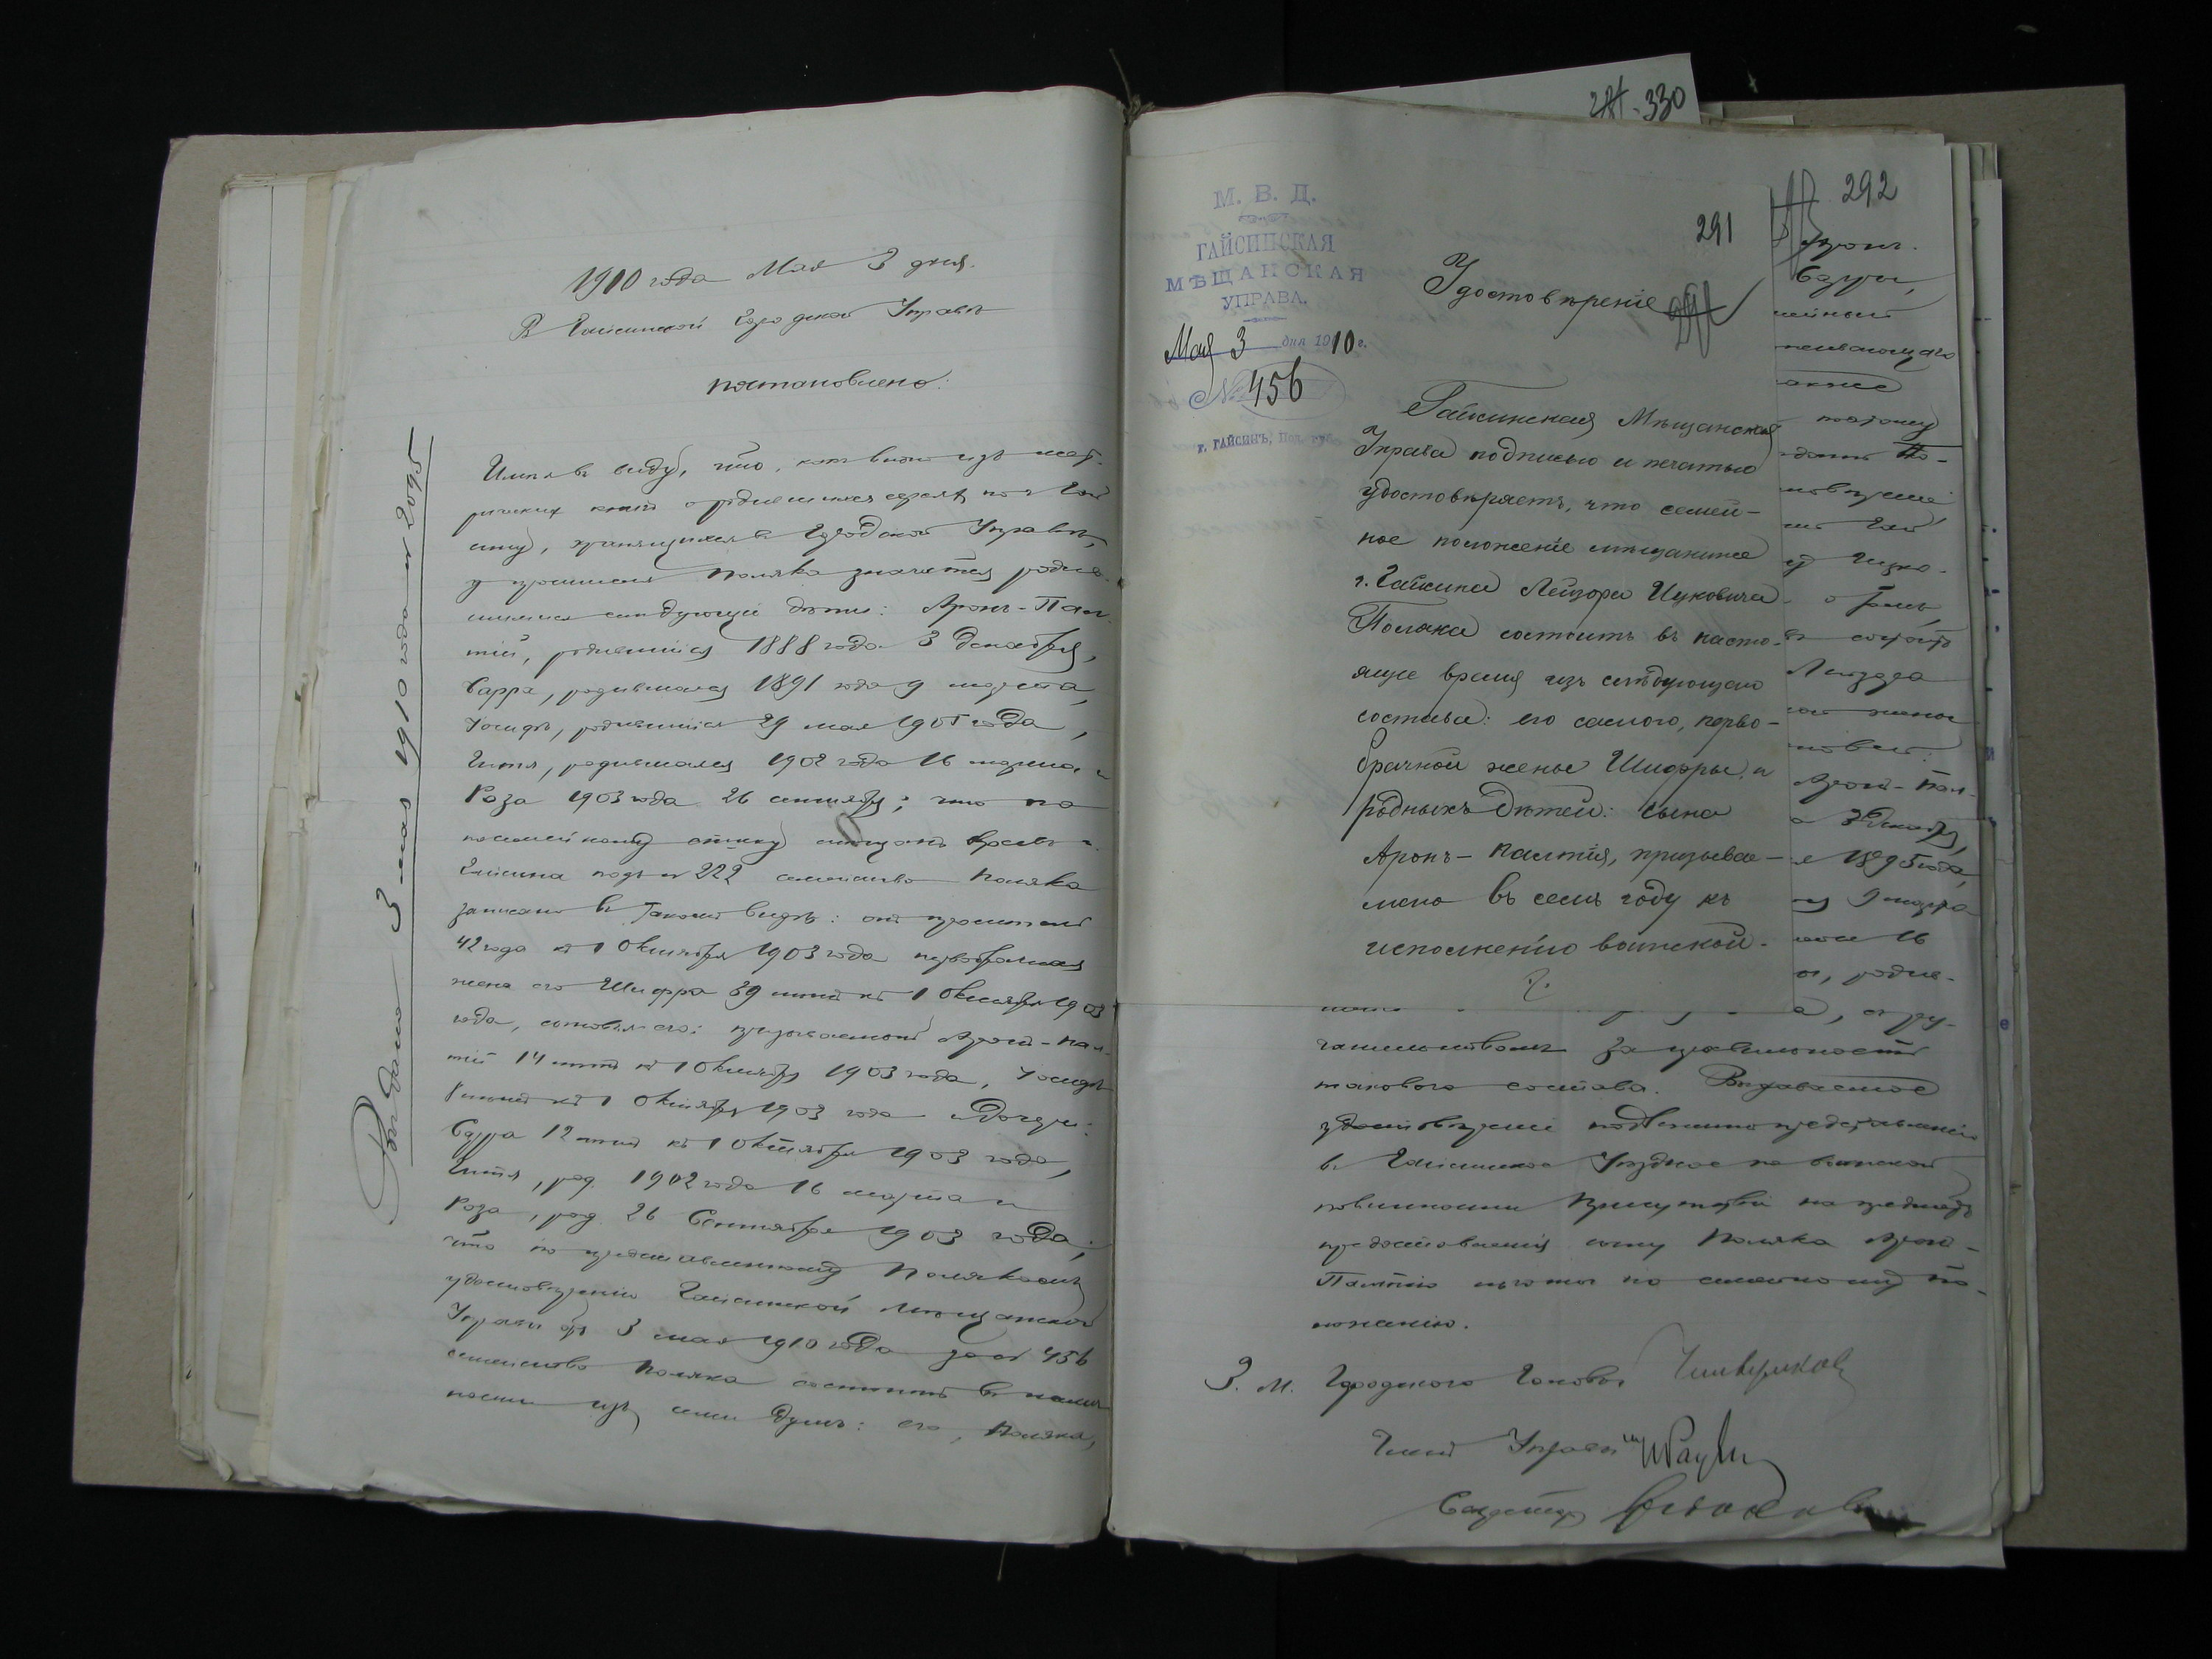 1910 года Мая 3 дня.
В Гайсинской Городской Управѣ
постановлено:
Выдано 3 мая 1910 года № 2095
Имѣя въ виду, что, какъ видно изъ мет-
рическихъ книгъ о родившихся евреяхъ по г. Гай
сину, хранящихся въ Городской Управѣ,
у просителя Поляка значатся родив-
шимися слѣдующіе дѣти: Аронъ-Пал
тій, родившійся 1888 года 3 декабря,
Сарра, родившаяся 1891 года 9 марта,
Іосифъ, родившійся 29 мая года,
Гитля, родившаяся 1902 года 16 марта и
Роза 1903 года 26 сентября; что по
посемейному списку мѣщанъ евреевъ г.
Гайсина подъ № 222 семейство Поляка
записано въ такомъ видѣ: онъ проситель
42 года къ 1 Октября 1903 года первобрачная
жена его Шифра 39 лѣтъ къ 1 Октября 1903
года, сыновья его: призываемый Аронъ-Пал-
тій 14 лѣтъ къ 1 Октября 1903 года, Іосифъ
8 лѣтъ къ 1 Октября 1903 года и дочери:
Сарра 12 лѣтъ къ 1 Октября 1903 года,
Гитля, род. 1902 года 16 марта и
Роза, род. 26 Сентября 1903 года;
что по представленному Полякомъ
удостовѣренію Гайсинской Мѣщанской
Управы отъ 3 мая 1910 года за № 456
семейство Поляка состоитъ въ налич
ности изъ семи душъ: его, Поляка,
330
М. В. Д.
ГАЙСИНСКАЯ
МѢЩАНСКАЯ
УПРАВА.
Мая 3 дня 1910 г.
№ 456
г. ГАЙСИНЪ, Под. губ.
291
Удостовѣреніе
Гайсинская Мѣщанская
Управа подписью и печатью
удостовѣряетъ, что семей-
ное положеніе мѣщанина
г. Гайсина Лейзора Ицковича
Поляка состоитъ въ насто-
ящее время изъ слѣдующаго
состава: его самого, перво-
брачной жены Шифры, и
родныхъ дѣтей: сына
Аронъ-Палтія, призывае-
маго въ семъ году къ
исполненію воинской
292
Аронъ-
Сарры,
Аронъ-Пал-
3 Декабря,
1895 года,
9 марта
16
, родив-
, съ ру-
чательствомъ за правильность
таковаго состава. Выдаваемое
удостовѣреніе подлежитъ представленію
въ Гайсинское Уѣздное по воинской
повинности Присутствіе на предметъ
предоставленія сыну Поляка Аронъ-
Палтію льготы по семейному по-
ложенію.
З. М. Городского Головы
Членъ Управы
Секретарь